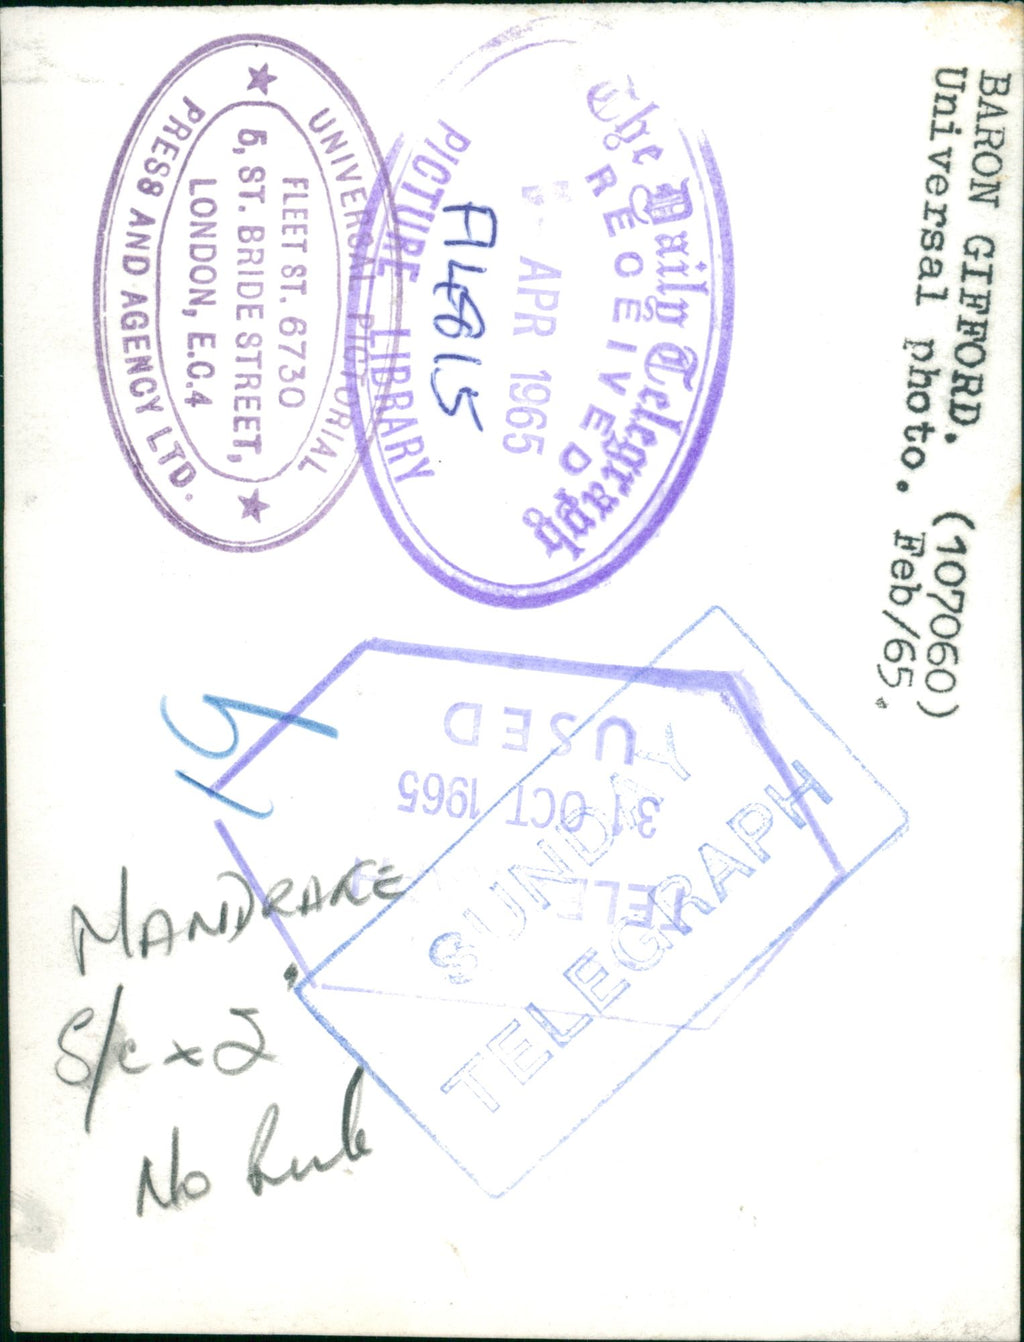 BARON GIFFORD. (107060)
Universal photo. Feb/65.
The Daily Telegraph
RECEIVED
APR 1965
PICTURE LIBRARY
UNIVERSAL PICTORIAL
FLEET ST. 6730
5, ST. BRIDE STREET,
LONDON, E.C.4
PRESS AND AGENCY LTD.
USED
31 OCT 1965
SUNDAY
TELEGRAPH
MANDRAKE
S/c x 2
No Rule